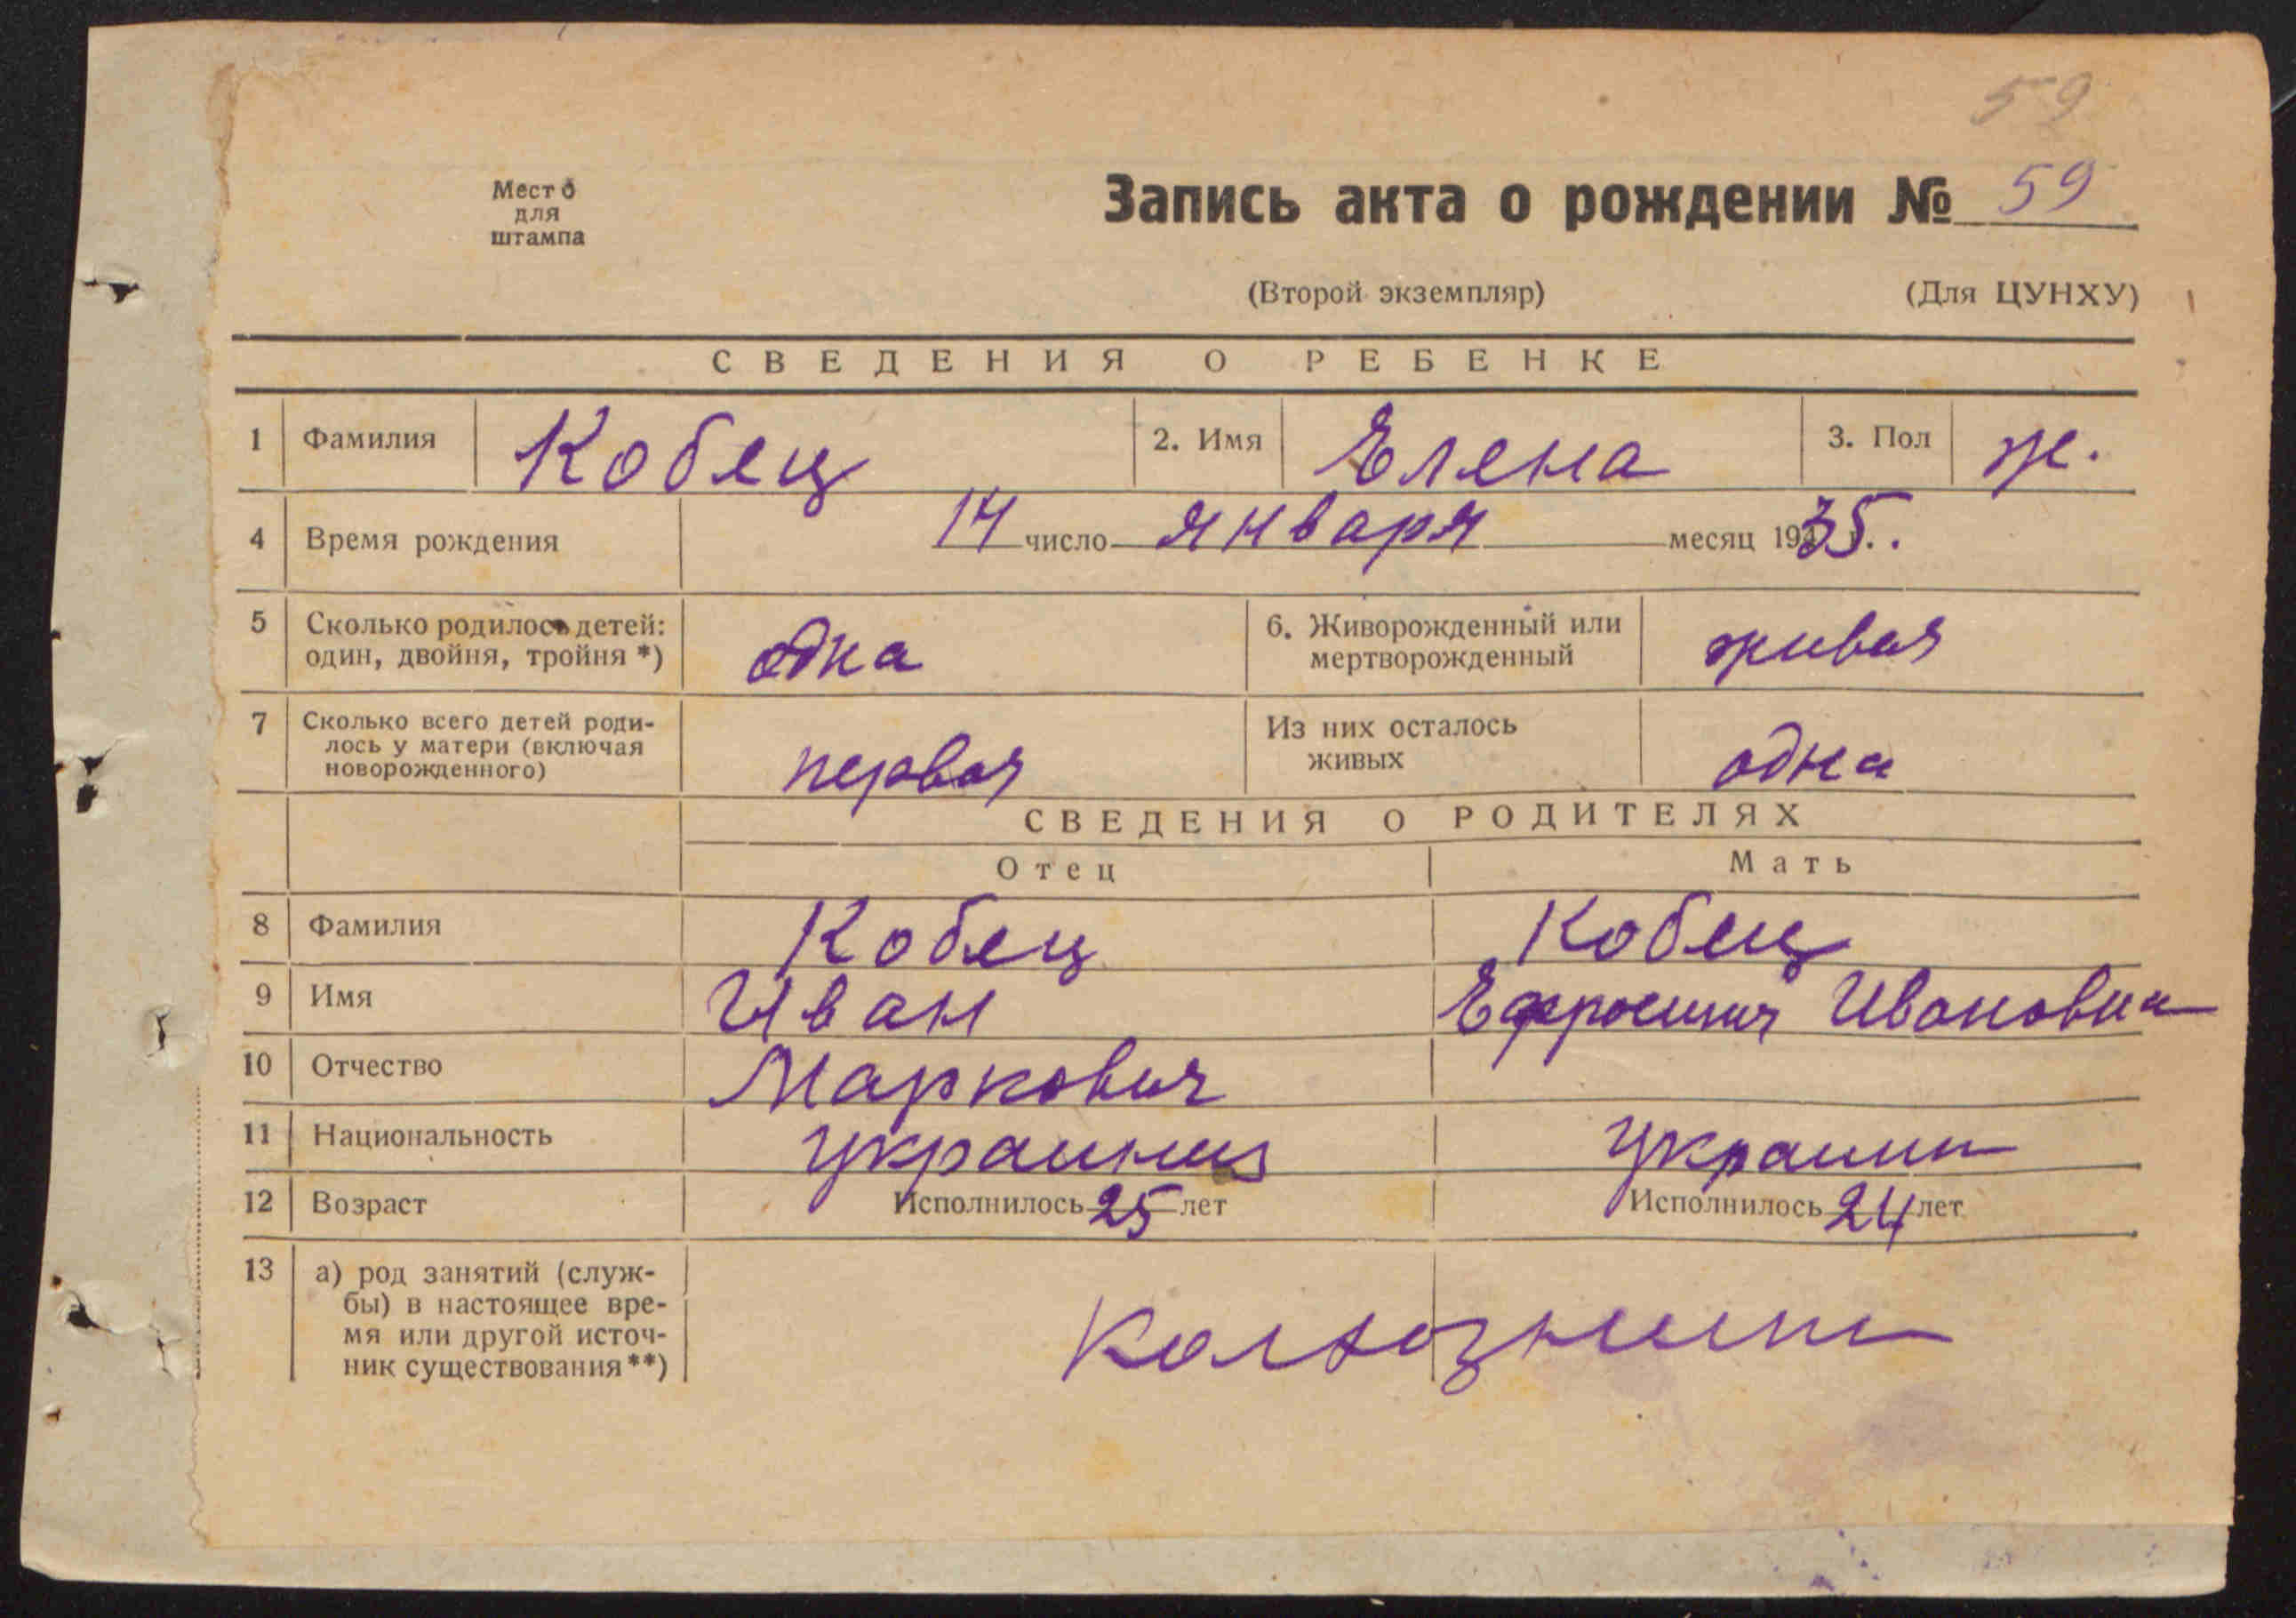 59
Место
для
штампа
Запись акта о рождении № 59
(Второй экземпляр) (Для ЦУНХУ)
СВЕДЕНИЯ О РЕБЕНКЕ
1 Фамилия Кобец 2. Имя Елена 3. Пол ж.
4 Время рождения 14 число января месяц 1935.
5 Сколько родилось детей: один, двойня, тройня *) одна 6. Живорожденный или мертворожденный живая
7 Сколько всего детей роди-
лось у матери (включая
новорожденного) первая Из них осталось живых одна
СВЕДЕНИЯ О РОДИТЕЛЯХ
Отец Мать
8 Фамилия Кобец Кобец
9 Имя Иван Ефросиния Ивановна
10 Отчество Маркович
11 Национальность
12 Возраст Исполнилось 25 лет Исполнилось 24 лет
13 а) род занятий (служ-
бы) в настоящее вре-
мя или другой источ-
ник существования **)